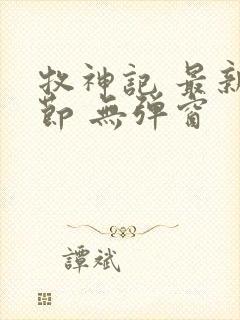 牧神記 最新
節 無彈窗
譚斌